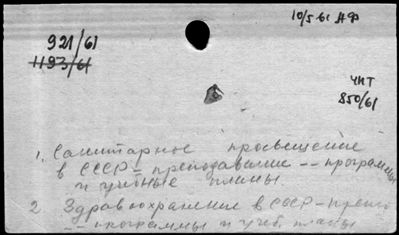 10/5 61 АФ
921/61
1193/61
ЧИТ
850/61
1. Санитарное просвещение
в СССР - преподавание -- программы
и учебные планы.
2. Здравоохранение в СССР - препо
-- программы и учеб. планы